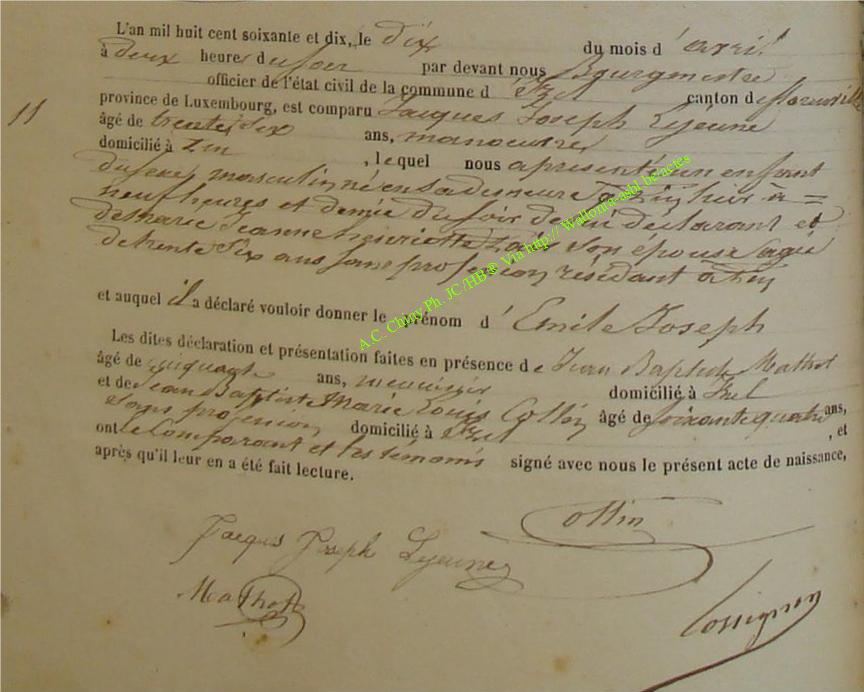 L'an mil huit cent soixante et dix, le dix du mois d'avril
à deux heures du soir par devant nous Bourgmestre
officier de l'état civil de la commune d'Izel canton de florenville
11
province de Luxembourg, est comparu Jacques Joseph Lejeune
âgé de trente six ans, manoeuvre
domicilié à , lequel nous a présenté un enfant
du sexe masculin né en sa demeure à hier à =
neuf heures et demie du soir de lui déclarant et
de Marie Jeanne henriette son épouse agée
de trente six ans sans profession résidant à
et auquel il a déclaré vouloir donner le prénom d'Emile Joseph
Les dites déclaration et présentation faites en présence de Jean Baptiste Mathot
âgé de cinquante ans, menuisier domicilié à Izel
et de Jean Baptiste Marie Louis Collin âgé de soixante quatre ans,
sans profession domicilié à Izel , et
ont le Comparant et les témoins signé avec nous le présent acte de naissance,
après qu'il leur en a été fait lecture.
A.C. Chiny Ph. JC/HB® Via http:// Wallonia-asbl.be/actes
Collin
Jacques Joseph Lejeune
Mathot